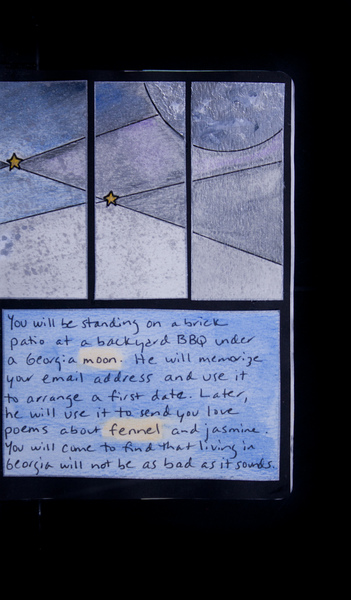 You will be standing on a brick
patio at a backyard BBQ under
a Georgia moon. He will memorize
your email address and use it
to arrange a first date. Later,
he will use it to send you love
poems about fennel and jasmine.
You will come to find that living in
Georgia will not be as bad as it sounds.